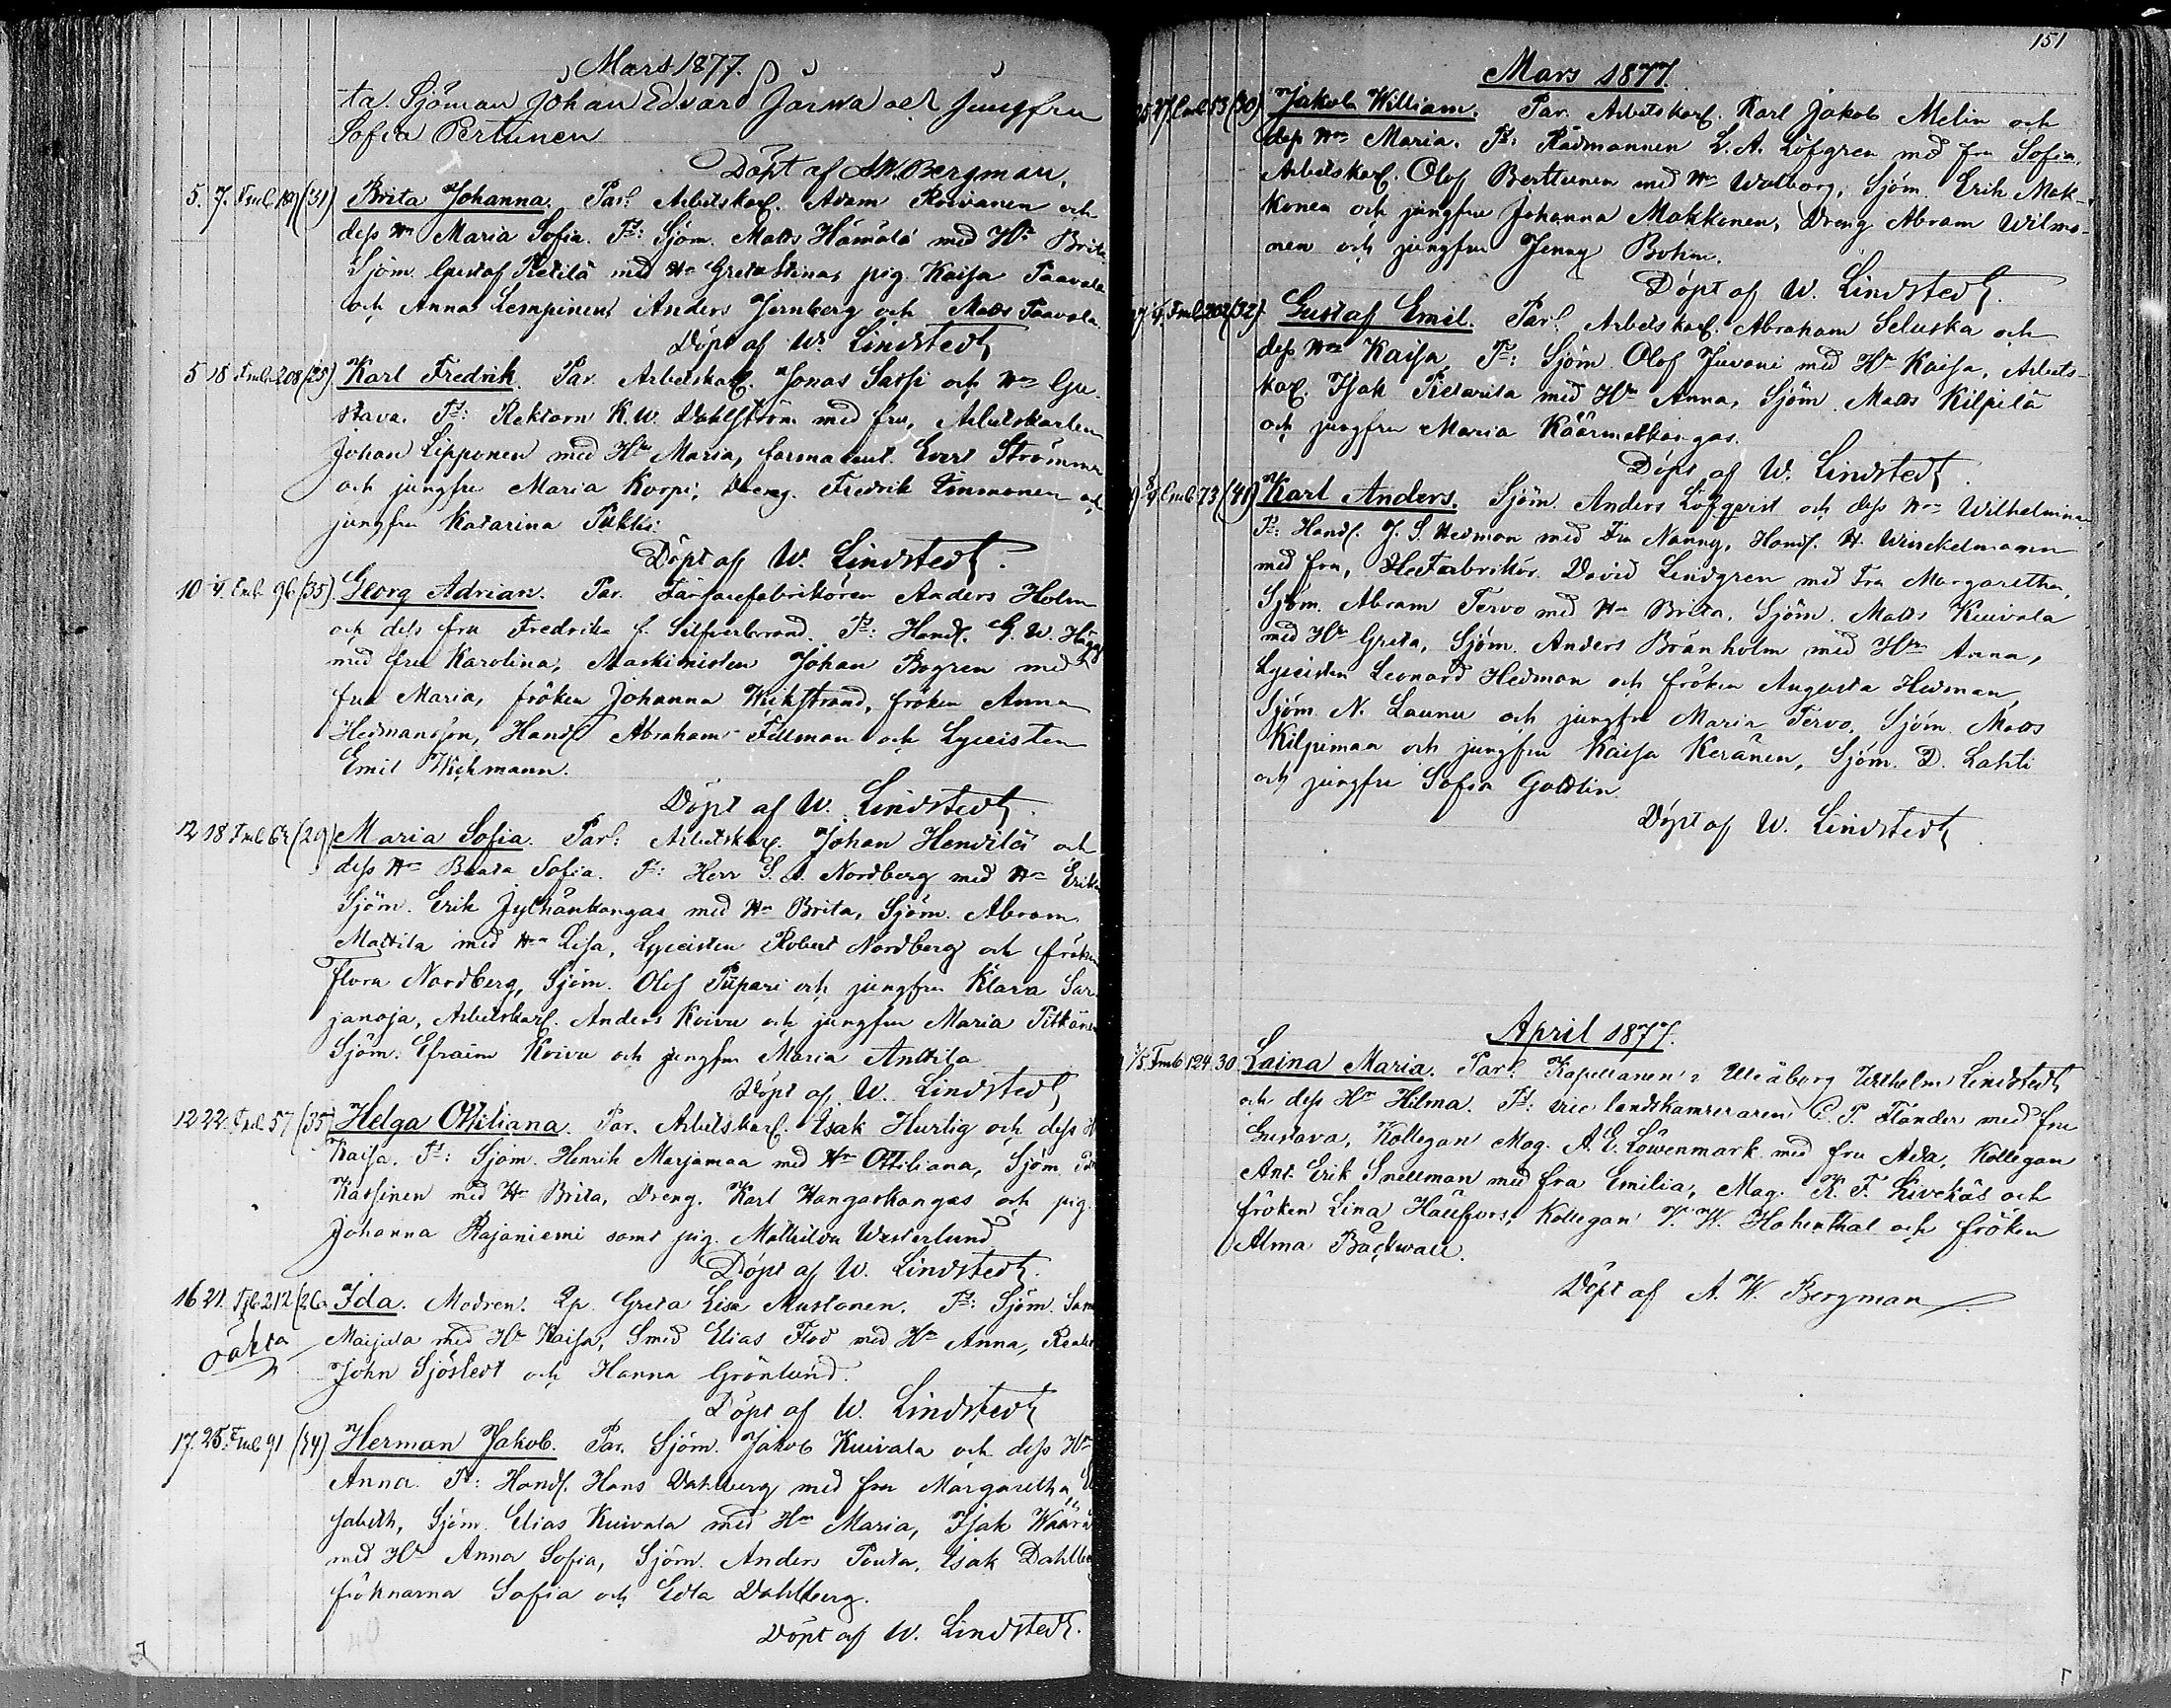 Mars 1877.
ta. Sjöman Johan Edvard Jarwa och Jungfru
Sofia Pertunen
Döpt af A.W. Bergman.
5. 7. Fmb. 189 (31) Brita Johanna. Par. Arbetskarl. Adam Roivanen och
dess Hu Maria Sofia. Ft: Sjöm. Matts Hämälä med Hu Brita
Sjöm. Gustaf Pietilä med Hu Greta Stina, pig. Kaisa Paavola
och Anna Lempinen, Anders Jernberg och Matts Paavola
Döpt af W. Lindstedt
5 18 Fmb. 208 (25) Karl Fredrik. Par. Arbetskarl. Jonas Sassi och Hu Gu-
stava. Ft: Rektorn K.W. Dahlström med fru, Arbetskarlen
Johan Lipponen med Hu Maria, farmaceut. Evert Strömmer
och jungfru Maria Korpi, Dreng. Fredrik Timmonen och
jungfru Katarina Pukki.
Döpt af W. Lindstedt.
10 4 Fmb. 96 (35) Georg Adrian. Par. Färgarefabrikören Anders Holm
och dess fru Fredrika f. Silfverbrand. Ft: Handl. G. W. Hägg
med fru Karolina, Maskinisten Johan Bogren med
fru Maria, fröken Johanna Wickstrand, fröken Anna
Hedmansson, Handl. Abraham Fellman och Lyceisten
Emil Wichmann.
Döpt af W. Lindstedt.
12 18 Fmb. 62 (29) Maria Sofia. Par: Arbetskarl. Johan Hendilä och
dess Hu Beata Sofia. Ft: Herr S. A. Nordberg med Hu Erika
Sjöm. Erik Jylhänkangas med Hu Brita, Sjöm. Abram
Mattila med Hu Lisa, Lyceisten Robert Nordberg och fröken
Flora Nordberg, Sjöm. Olof Piipari och jungfru Klara Sar-
janoja, Arbetskarl. Anders Koivu och jungfru Maria Pitkänen
Sjöm. Efraim Koivu och jungfru Maria Anttila
Döpt af W. Lindstedt
12 22 Fmb. 57 (35) Helga Ottiliana. Par. Arbetskarl. Isak Hurtig och dess H
Kaisa. Ft: Sjöm. Henrik Marjamaa med Hu Ottiliana, Sjöm.
Kassinen med Hu Brita, Dreng. Karl Hangaskangas och pig.
Johanna Rajaniemi samt pig. Mathilda Westerlund
Döpt af W. Lindstedt.
16 21. Fjb 212 (26 Ida. Modren. Qp. Greta Lisa Mustonen. Ft: Sjöm. Sam
oäkta Maijala med Hu Kaisa, Smed Elias Flod med Hu Anna,
John Sjöstedt och Hanna Grönlund.
Döpt af W. Lindstedt
17. 25. Fmb. 91 (34) Herman Jakob. Par. Sjöm. Jakob Kuivala och dess Hu
Anna. Ft: Handl. Hans Dahlberg med fru Margaretha E
sabeth, Sjöm. Elias Kuivala med Hu Maria, Isak Wäärä
med Hu Anna Sofia, Sjöm. Anders Pouta, Isak Dahlberg
fröknarna Sofia och Edla Dahlberg.
Döpt af W. Lindstedt.
151
Mars 1877.
25 27 Fmb. 53 (30) Jakob William. Par. Arbetskarl. Karl Jakob Melin och
dess Hu Maria. Ft: Rådmannen L. A. Löfgren med fru Sofia,
Arbetskarl. Olof Berttunen med Hu Walborg, Sjöm. Erik Mak-
konen och jungfru Johanna Makkonen, Dreng Abram Wilmo-
nen och jungfru Jenny Bohm.
Döpt af W. Lindstedt.
Fmb. 202 (32) Gustaf Emil. Par. Arbetskarl. Abraham Seluska och
dess Hu Kaisa, Ft: Sjöm. Olof Juvani med Hu Kaisa, Arbets-
karl. Isak Pietarila med Hu Anna, Sjöm. Matts Kilpelä
och jungfru Maria Käärmekangas.
Döpt af W. Lindstedt.
Fmb. 73 (41) Karl Anders. Sjöm. Anders Löfqvist och dess Hu Wilhelmina
Ft: Handl. J. S. Hedman med Fru Nanny, Handl. H. Winckelmann
med fru, Fabrikör. David Lindgren med Fru Margaretha,
Sjöm. Abram Tervo med Hu Brita, Sjöm. Matts Kuivala
med Hu Greta, Sjöm. Anders Bränholm med Hu Anna,
Lyceisten Leonard Hedman och fröken Augusta Hedman,
Sjöm. N. Launu och jungfru Maria Tervo, Sjöm. Matts
Kilpimaa och jungfru Kaisa Keränen, Sjöm. D. Lahti
och jungfru Sofia Goldlin.
Döpt af W. Lindstedt
April 1877.
Fmb 124 30 Laina Maria. Par. Kapellanen i Uleåborg Wilhelm Lindstedt
och dess Hu Hilma. Ft: vice landskamreraren C. P. Flander med fru
Gustava, Kollegan Mag. A. E. Löwenmark med fru Ada, Kollegan
Ant. Erik Snellman med fru Emilia, Mag. K. F. Kivekäs och
fröken Lina Häufgors, Kollegan V. W. Hohenthal och fröken
Alma Bäckwall.
Döpt af A. W. Bergman